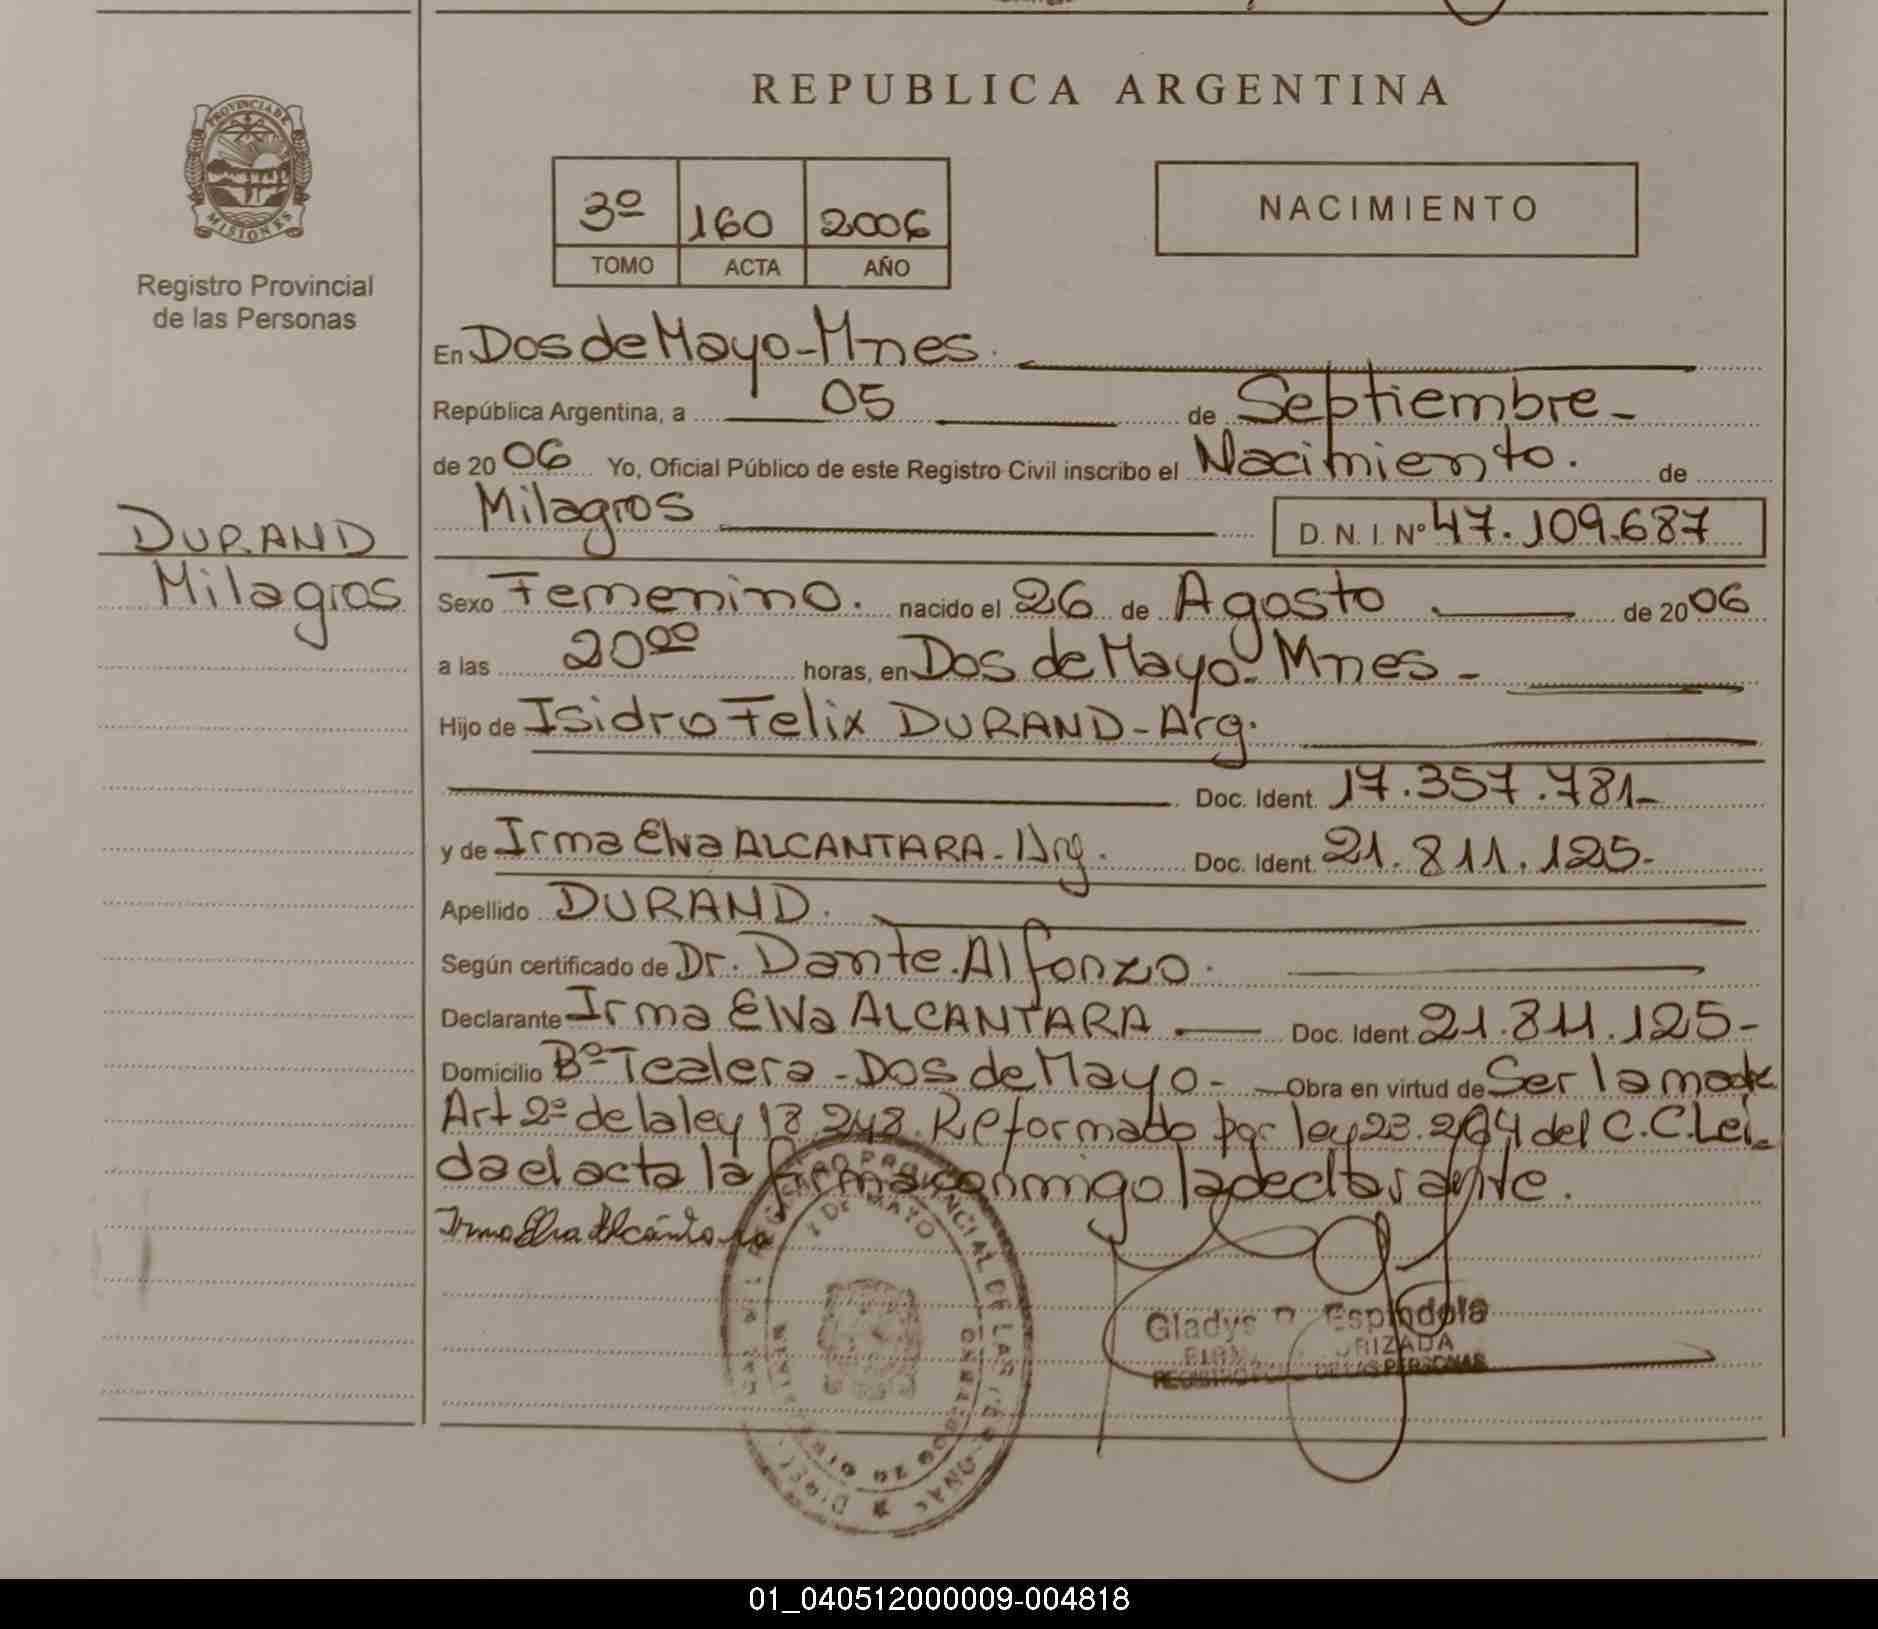 REPUBLICA ARGENTINA
PROVINCIA DE
MISIONES
Registro Provincial
de las Personas
3º 160 2006
TOMO ACTA AÑO
NACIMIENTO
En Dos de Mayo - Mnes.
República Argentina, a 05 de Septiembre -
de 2006 Yo, Oficial Público de este Registro Civil inscribo el Nacimiento. de
Milagros D. N. I. Nº 47.109.687
DURAND
Milagros
Sexo Femenino. nacido el 26 de Agosto . de 2006
a las 20ºº horas, en Dos de Mayo - Mnes -
Hijo de Isidro Felix DURAND - Arg.
Doc. Ident. 17.357.781-
y de Irma Elva ALCANTARA - Arg. Doc. Ident. 21.811.125-
Apellido DURAND.
Según certificado de Dr. Dante Alfonzo.
Declarante Irma Elva ALCANTARA Doc. Ident. 21.811.125-
Domicilio Bº Tealera - Dos de Mayo - Obra en virtud de Ser la madre
Art 2º de la ley 18.248. Reformado por ley 23.264 del C.C. Leí-
da el acta la firma conmigo la declarante.
Irma Elva Alcántara
REGISTRO PROVINCIAL DE LAS PERSONAS
2 DE MAYO
Gladys Espindola
REGISTRO DE LAS PERSONAS
01_040512000009-004818